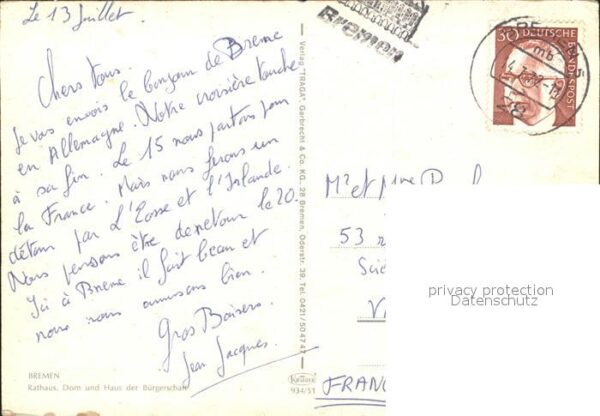 Le 13 Juillet
Chers Tous.
Je vous envoie le bonjour de Breme
en Allemagne. Notre croisière touche
à sa fin. Le 15 nous partons pour
la France. Mais nous ferons un
détour par l'Ecosse et l'Irlande.
Nous pensons être de retour le 20.
Ici à Breme il fait beau et
nous nous amusons bien.
Gros Baisers.
Jean Jacques.
BREMEN
Rathaus, Dom und Haus der Bürgerschaft
Verlag "TRAGA", Garbrecht & Co. KG., 28 Bremen, Oderstr. 39, Tel. 0421/504747
Krüger
934/51
Bremen
30 DEUTSCHE
BUNDESPOST
28
Mr et Mme
53
FRANC
privacy protection
Datenschutz